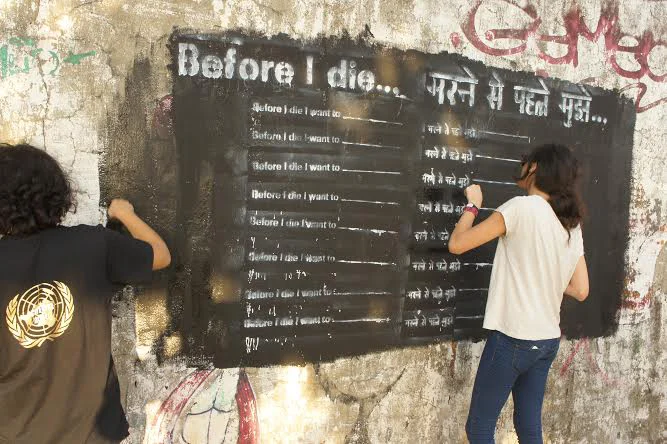 Before I die...
Before I die I want to ________
Before I die I want to ________
Before I die I want to ________
Before I die I want to ________
Before I die I want to ________
Before I die I want to ________
Before I die I want to ________
Before I die I want to ________
मरने से पहले मुझे...
मरने से पहले मुझे ________
मरने से पहले मुझे ________
मरने से पहले मुझे ________
मरने से पहले मुझे
मरने से पहले मुझे
मरने से पहले मुझे ________
मरने से पहले मुझे ________
मरने से पहले मुझे ________